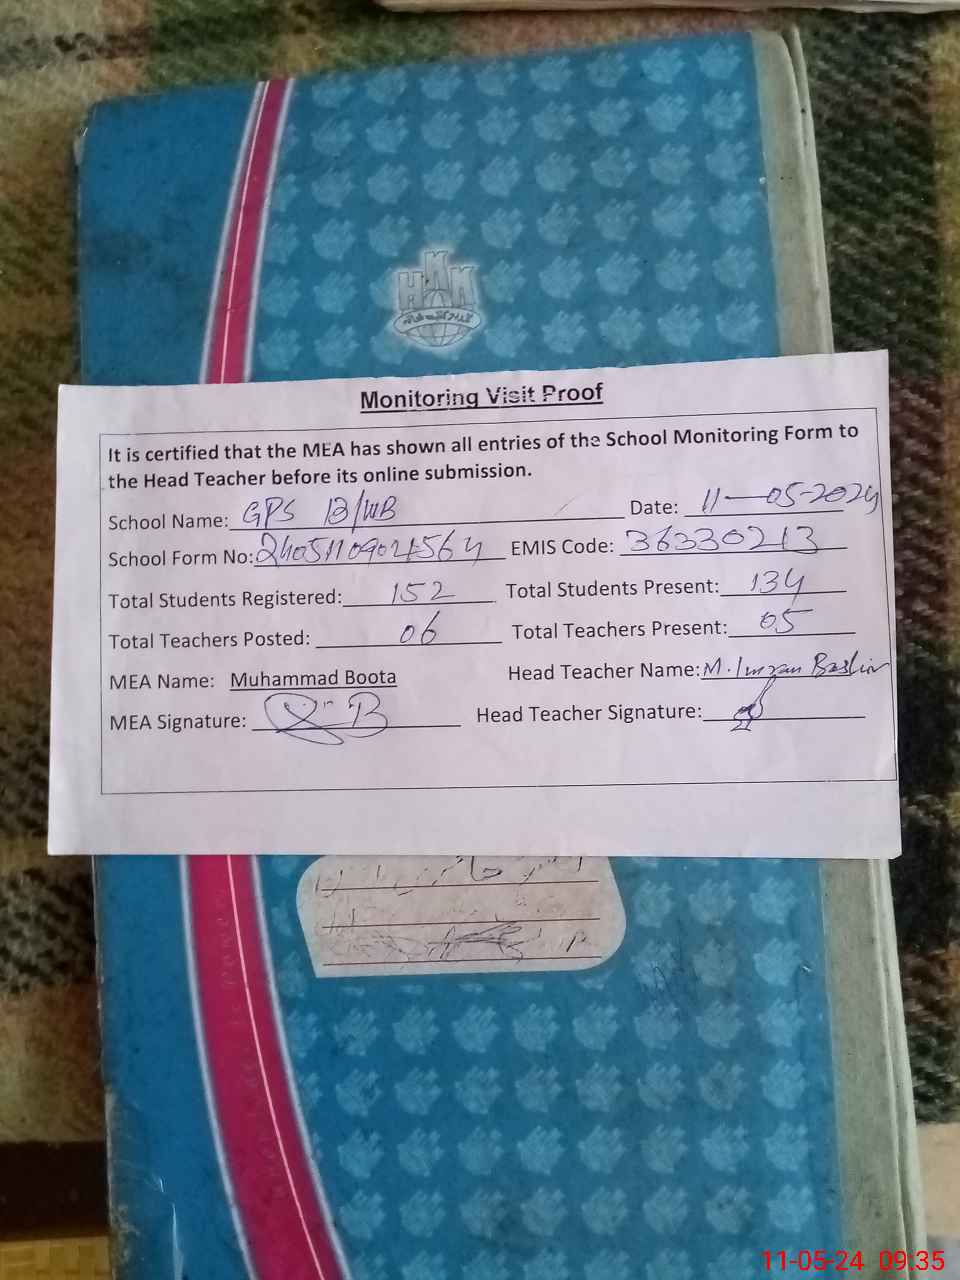 Monitoring Visit Proof
It is certified that the MEA has shown all entries of the School Monitoring Form to
the Head Teacher before its online submission.
School Name: GPS 13/WB Date: 11-05-2024
School Form No: 2405110904564 EMIS Code: 36330213
Total Students Registered: 152 Total Students Present: 134
Total Teachers Posted: 06 Total Teachers Present: 05
MEA Name: Muhammad Boota Head Teacher Name: M. Imran Bashir
MEA Signature: Head Teacher Signature:
11-05-24 09:35